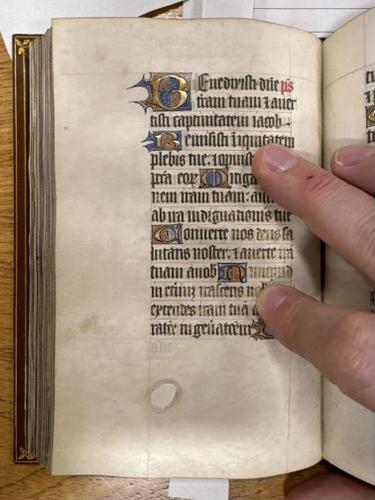 Benedixisti dñe p̃s
tram tuam ⁊ auer
tisti captiuitatem iacob ·
Remisisti iniquitatem
plebis tue
pctã eoꝝ M
nem iram tuam: 
ab ira indignationis tue
Conuerte nos deus sa
lutaris noster: ⁊ auerte irã
tuam a nob̃ Nunquid
in eternũ irasceris
extendes iram tuã
ratiõe in gen̾atiõem